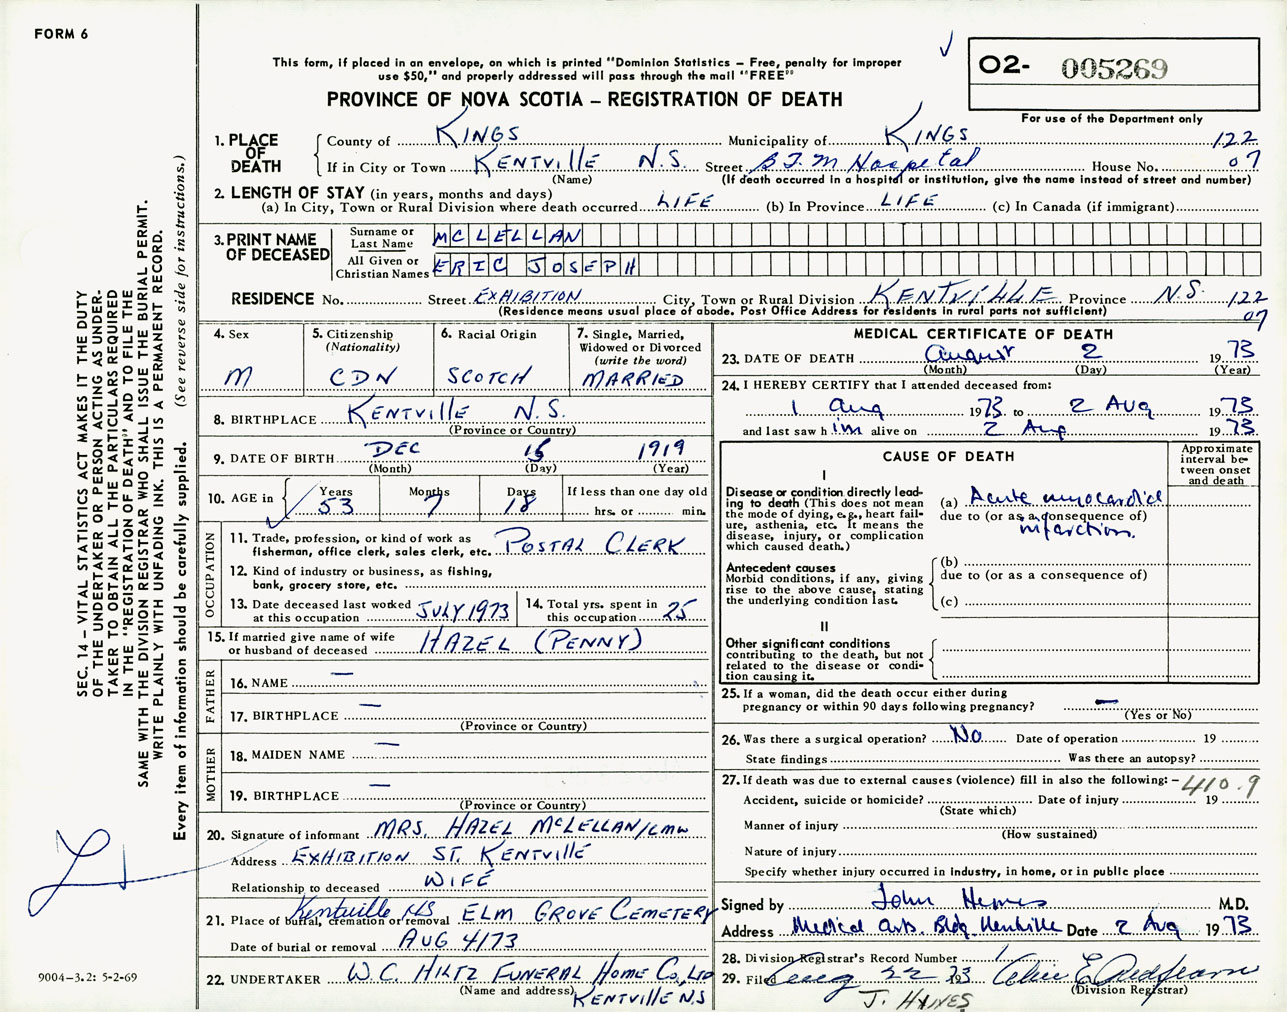 FORM 6
This form, if placed in an envelope, on which is printed "Dominion Statistics – Free, penalty for improper
use $50," and properly addressed will pass through the mail "FREE"
PROVINCE OF NOVA SCOTIA – REGISTRATION OF DEATH
O2- 005269
For use of the Department only
1. PLACE OF DEATH
County of KINGS Municipality of KINGS 122
If in City or Town KENTVILLE N.S. Street B.F.M Hospital House No. 07
(Name) (If death occurred in a hospital or institution, give the name instead of street and number)
2. LENGTH OF STAY (in years, months and days)
(a) In City, Town or Rural Division where death occurred LIFE (b) In Province LIFE (c) In Canada (if immigrant)
3. PRINT NAME OF DECEASED
Surname or Last Name MCLELLAN
All Given or Christian Names ERIC JOSEPH
RESIDENCE No. Street EXHIBITION City, Town or Rural Division KENTVILLE Province N.S. 122
(Residence means usual place of abode. Post Office Address for residents in rural parts not sufficient) 07
4. Sex
M
5. Citizenship
(Nationality)
CDN
6. Racial Origin
SCOTCH
7. Single, Married,
Widowed or Divorced
(write the word)
MARRIED
8. BIRTHPLACE KENTVILLE N.S.
(Province or Country)
9. DATE OF BIRTH DEC 15 1919
(Month) (Day) (Year)
10. AGE in Years Months Days If less than one day old
53 7 18 hrs. or min.
OCCUPATION
11. Trade, profession, or kind of work as
fisherman, office clerk, sales clerk, etc. POSTAL CLERK
12. Kind of industry or business, as fishing,
bank, grocery store, etc.
13. Date deceased last worked
at this occupation JULY 1973
14. Total yrs. spent in
this occupation 25
15. If married give name of wife
or husband of deceased HAZEL (PENNY)
FATHER
16. NAME —
17. BIRTHPLACE —
(Province or Country)
MOTHER
18. MAIDEN NAME —
19. BIRTHPLACE —
(Province or Country)
20. Signature of informant MRS. HAZEL MCLELLAN/cmw
Address EXHIBITION ST. KENTVILLE
Relationship to deceased WIFE
21. Place of burial, cremation or removal Kentville NS ELM GROVE CEMETERY
Date of burial or removal AUG 4/73
22. UNDERTAKER W.C. HILTZ FUNERAL HOME CO., LTD
(Name and address) KENTVILLE N.S
MEDICAL CERTIFICATE OF DEATH
23. DATE OF DEATH August 2 1973
(Month) (Day) (Year)
24. I HEREBY CERTIFY that I attended deceased from:
1 Aug 1973 to 2 Aug 1973
and last saw him alive on 2 Aug 1973
CAUSE OF DEATH
Approximate
interval be-
tween onset
and death
I
Disease or condition directly lead-
ing to death (This does not mean
the mode of dying, e.g., heart fail-
ure, asthenia, etc. It means the
disease, injury, or complication
which caused death.)
(a) Acute myocardial
due to (or as a consequence of)
infarction.
Antecedent causes
Morbid conditions, if any, giving
rise to the above cause, stating
the underlying condition last.
(b)
due to (or as a consequence of)
(c)
II
Other significant conditions
contributing to the death, but not
related to the disease or condi-
tion causing it.
25. If a woman, did the death occur either during
pregnancy or within 90 days following pregnancy? —
(Yes or No)
26. Was there a surgical operation? No Date of operation 19
State findings Was there an autopsy?
27. If death was due to external causes (violence) fill in also the following: – 410.9
Accident, suicide or homicide? Date of injury 19
(State which)
Manner of injury
(How sustained)
Nature of injury
Specify whether injury occurred in industry, in home, or in public place
Signed by John M.D.
Address Medical Arts. Bldg. Kentville Date 2 Aug 1973
28. Division Registrar's Record Number
29. Filed Aug 22 1973
(Division Registrar)
J. HYNES
SEC. 14 – VITAL STATISTICS ACT MAKES IT THE DUTY
OF THE UNDERTAKER OR PERSON ACTING AS UNDER-
TAKER TO OBTAIN ALL THE PARTICULARS REQUIRED
IN THE "REGISTRATION OF DEATH" AND TO FILE THE
SAME WITH THE DIVISION REGISTRAR WHO SHALL ISSUE THE BURIAL PERMIT.
WRITE PLAINLY WITH UNFADING INK. THIS IS A PERMANENT RECORD.
Every item of information should be carefully supplied. (See reverse side for instructions.)
9004-3.2: 5-2-69